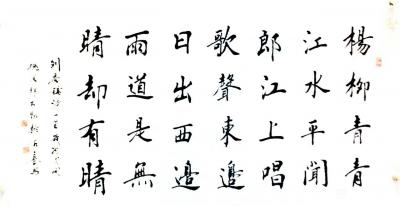 楊柳青青
江水平聞
郎江上唱
歌聲東邊
日出西邊
雨道是無
晴却有晴
劉禹錫詩一首